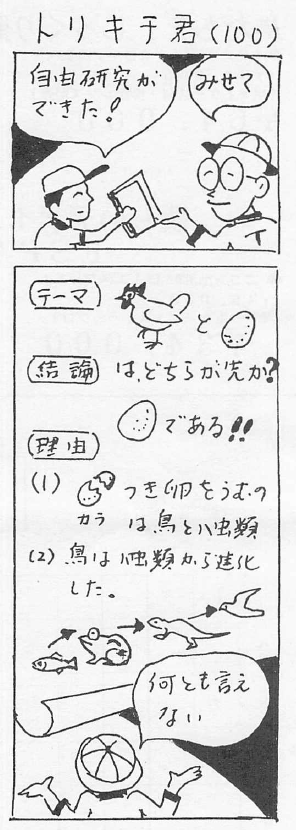 トリキチ君(100)
自由研究が
できた!
みせて
テーマ
と
は、どちらが先か?
結論
である!!
理由
(1) つき卵をうむの
カラ は鳥とハ虫類
(2) 鳥はハ虫類から進化
した。
何とも言え
ない